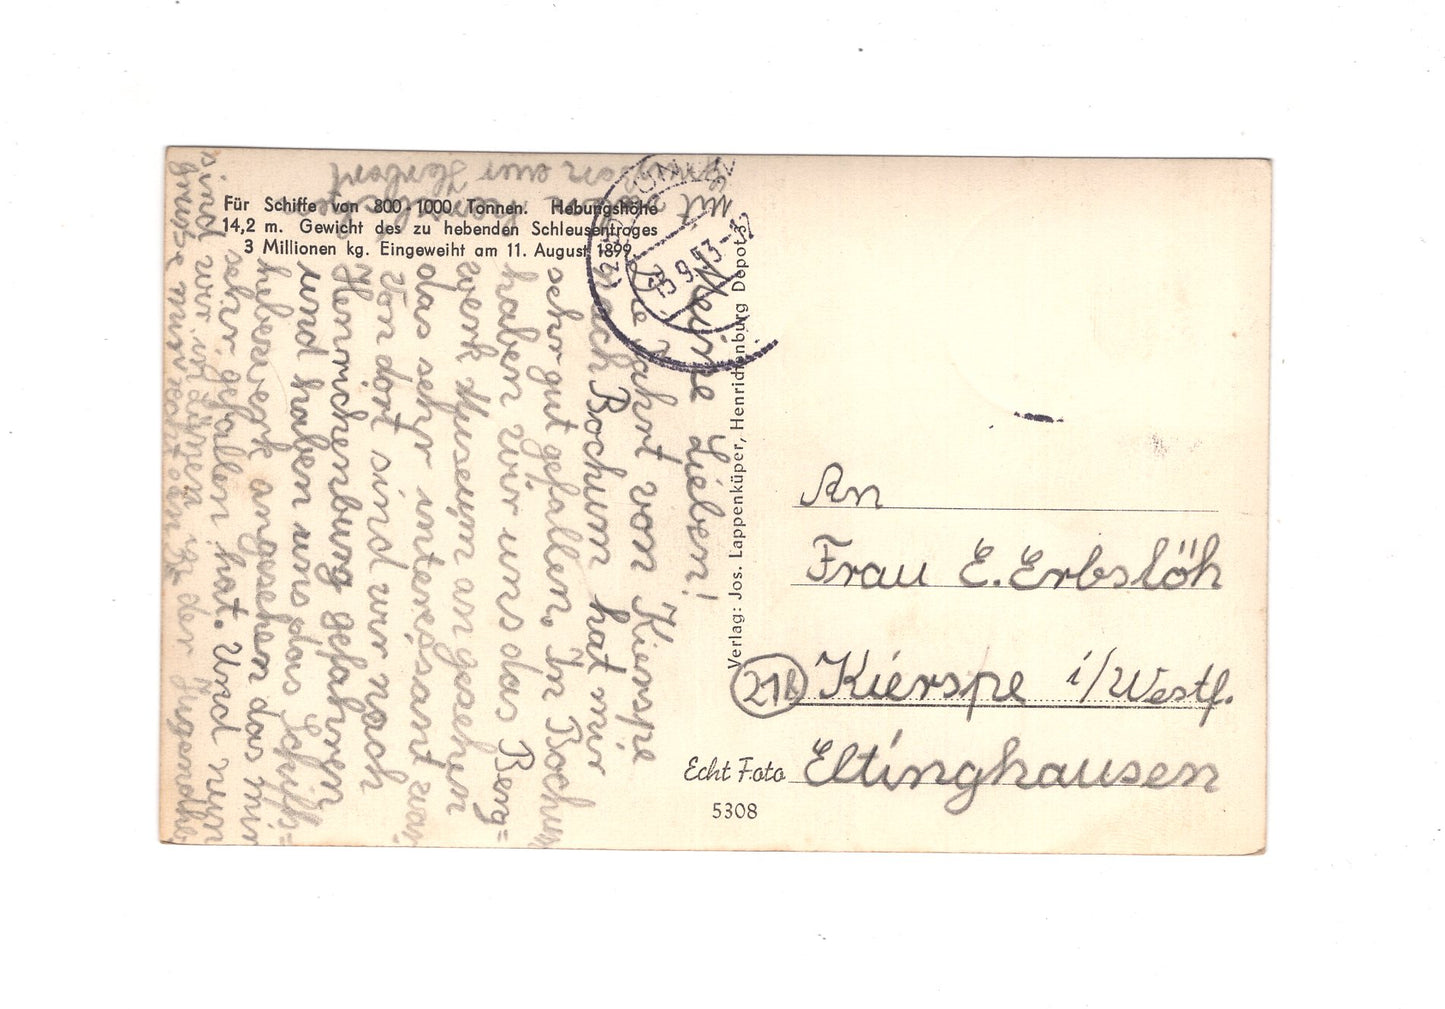 Für Schiffe von 800-1000 Tonnen. Hebungshöhe
14,2 m. Gewicht des zu hebenden Schleusentroges
3 Millionen kg. Eingeweiht am 11. August 1899.
Meine Lieben!
Die Fahrt von Kierspe
nach Bochum hat mir
sehr gut gefallen. In Bochum
haben wir uns das Berg=
werk Museum angesehen
das sehr interessant war.
Von dort sind wir nach
Henrichenburg gefahren
und haben uns das Schiffs=
hebewerk angesehen das mir
sehr gefallen hat. Und nun
sind wir in der Jugendhe
grüße
Mit
euer Herbert
(21b)
9.53
Verlag: Jos. Lappenküper, Henrichenburg Depot
An
Frau E. Erbslöh
(21b) Kierspe i/Westf.
Eltinghausen
Echt Foto
5308